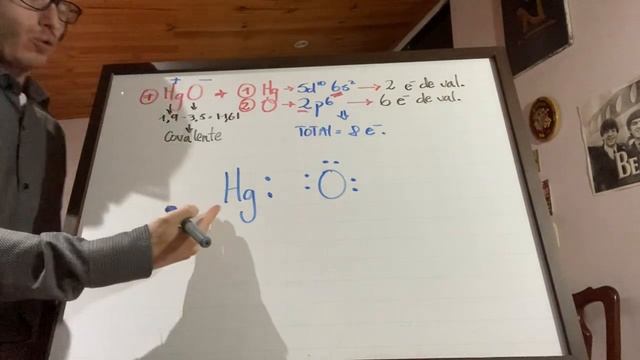 + −
① HgO * ① Hg → 5d¹⁰ 6s² → 2 e⁻ de val.
② O → 2p⁶ → 6 e⁻ de val.
1,9 - 3,5 = 1-1,6 |
Covalente
TOTAL = 8 e⁻.
Hg: :Ö:
BE